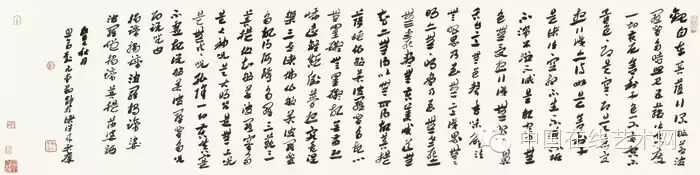 觀自在菩薩行深般若波
羅蜜多時照見五蘊皆空度
一切苦厄舍利子色不異空空不
異色色即是空空即是色受想
行識亦復如是舍利子
是諸法空相不生不滅不垢
不淨不增不減是故空中無
色無受想行識無眼耳鼻
舌身意無色聲香味觸法
無眼界乃至無意識界無無
明亦無無明盡乃至無老死
亦無老死盡無苦集滅道
無智亦無得以無所得故菩提
薩埵依般若波羅蜜多故心
無罣礙無罣礙故無有恐
怖遠離顛倒夢想究竟涅
槃三世諸佛依般若波羅蜜
多故得阿耨多羅三藐三
菩提故知般若波羅蜜多
是大神咒是大明咒是無上咒
是無等等咒能除一切苦真實
不虛故說般若波羅蜜多咒
即說咒曰
揭諦揭諦波羅揭諦波
羅僧揭諦菩提薩婆訶
中国在线艺术网